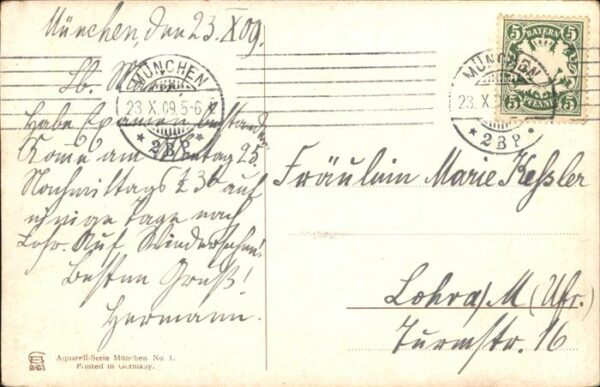 München, den 23. X 09.
Lb. Marie!
Habe Examen bestanden
Kome am Montag 25.
Nachmittags 2 36 auf
einige Tage nach
Lohr. Auf Wiedersehen!
Besten Gruß!
Hermann.
Aquarell-Serie München No. 1.
Printed in Germany.
MÜNCHEN
23. X. 09. 5-6
* 2 B P *
MÜNCHEN
23. X.
* 2 B P *
5 BAYERN 5
5 PFENNIG 5
Fräulein Marie Keßler
Lohr a/M (Ufr.)
Turmstr. 16